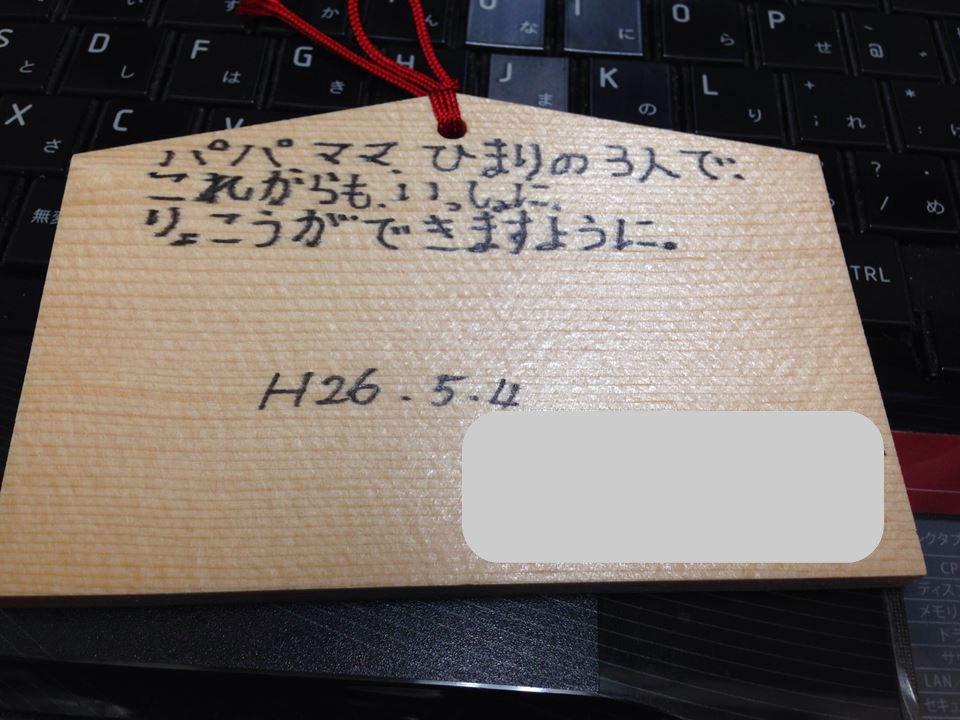 パパ、ママ、ひまりの3人で、
これからも、いっしょに、
りょこうができますように。
H26.5.4
S
と
D
し
F
は
G
き
H
J
ま
K
の
L
り
+
;
れ
*
:
X
さ
C
V
か
ん
U
な
I
に
O
ら
P
せ
@
?
/
・
め
CTRL
無変
メモリ
LAN
セキュ